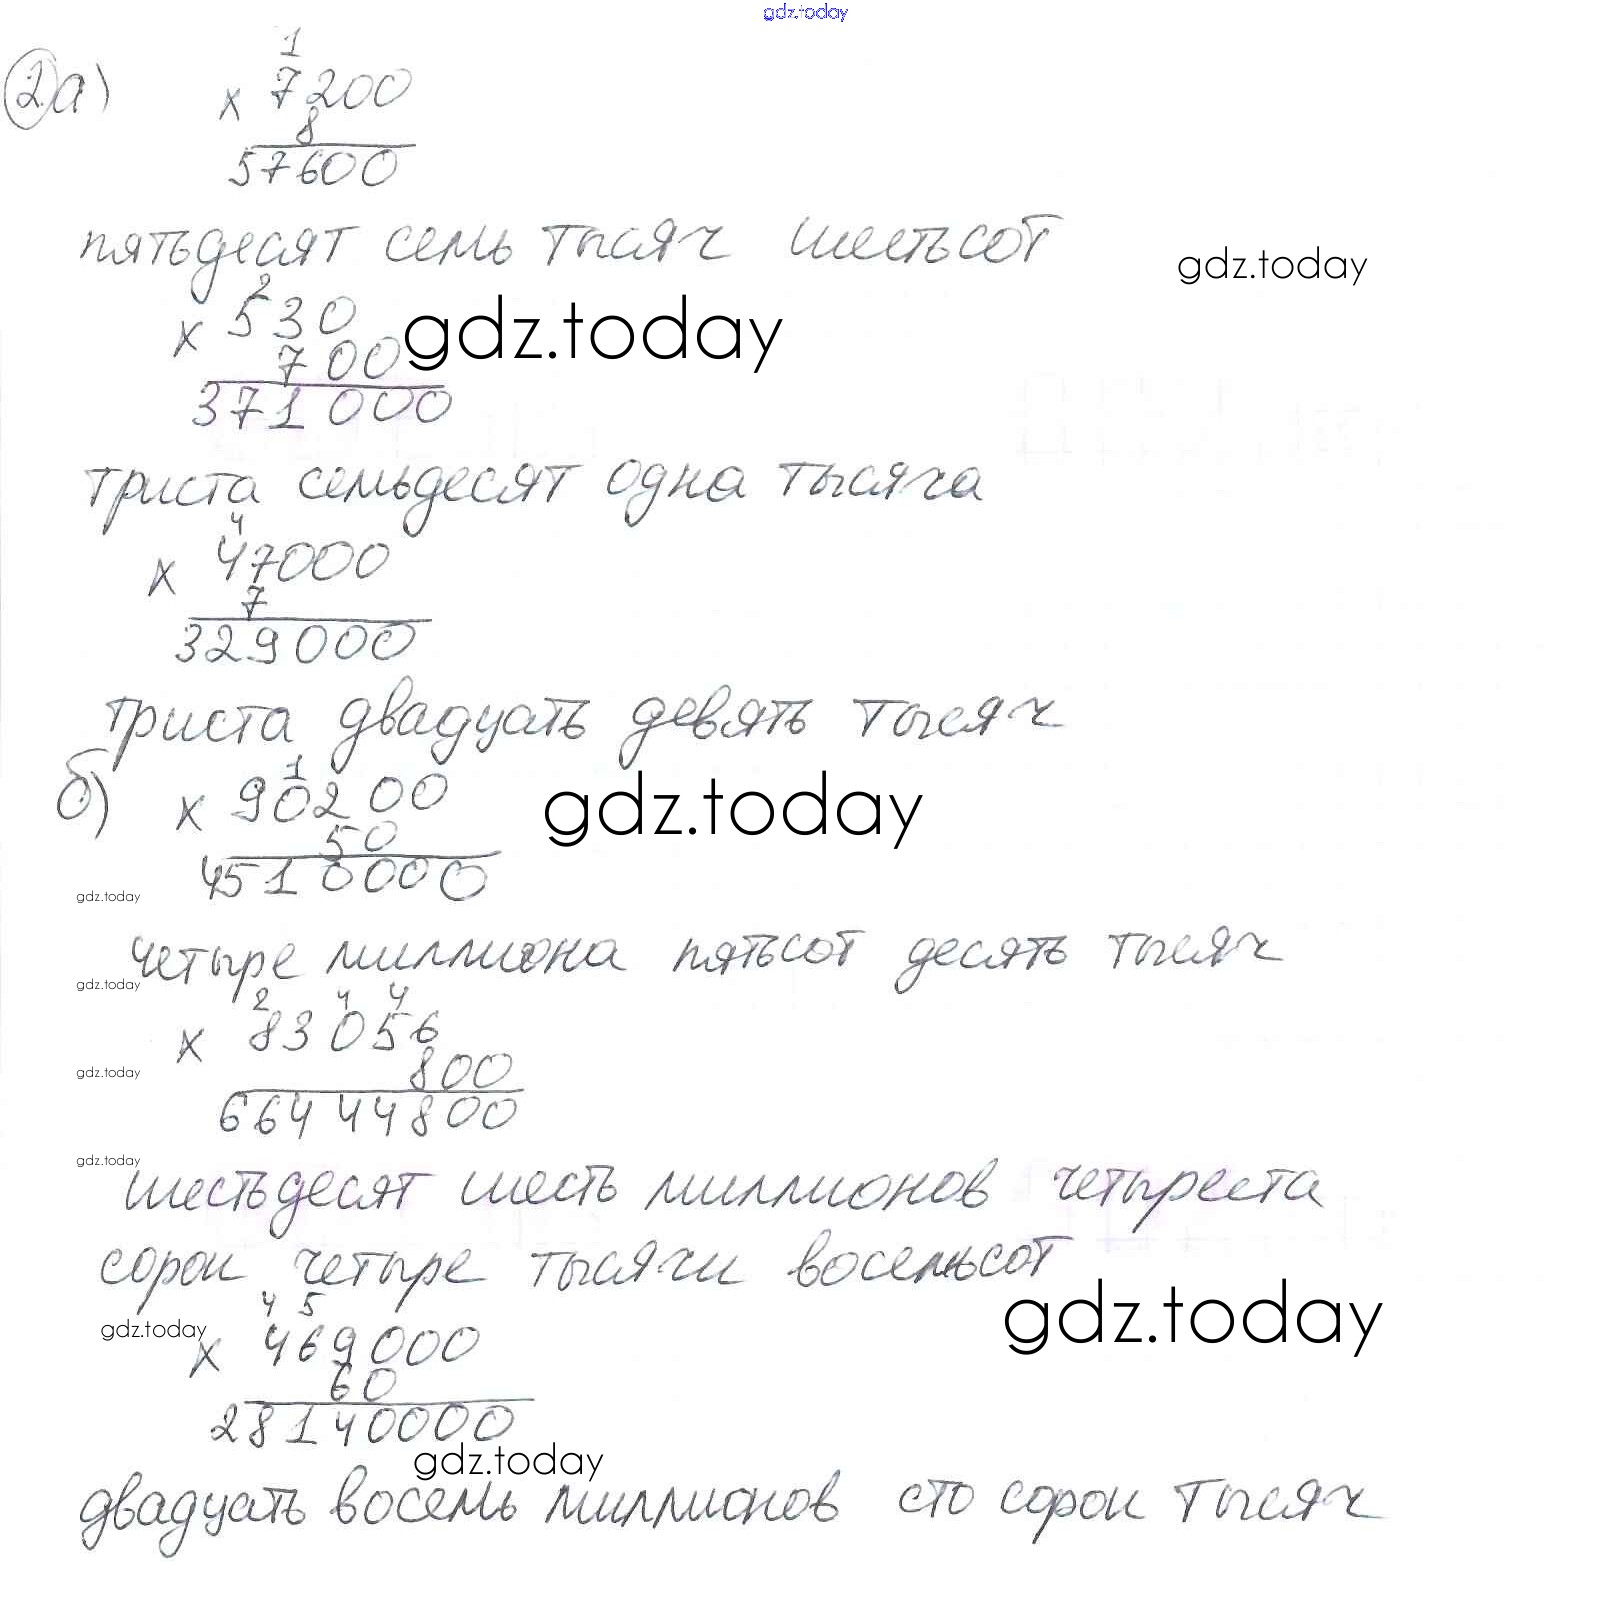 gdz.today
1
2 а) × 7200
8
57600
пятьдесят семь тысяч шестьсот
gdz.today
2
× 530
gdz.today
700
371 000
триста семьдесят одна тысяча
4
× 47000
7
329000
триста двадцать девять тысяч
1
б) × 90200
gdz.today
50
4510000
gdz.today
четыре миллиона пятьсот десять тысяч
gdz.today
2 4 4
× 83056
800
gdz.today
66444800
gdz.today
шестьдесят шесть миллионов четыреста
сорок четыре тысячи восемьсот
4 5
gdz.today
gdz.today
× 469000
60
28140000
gdz.today
двадцать восемь миллионов сто сорок тысяч